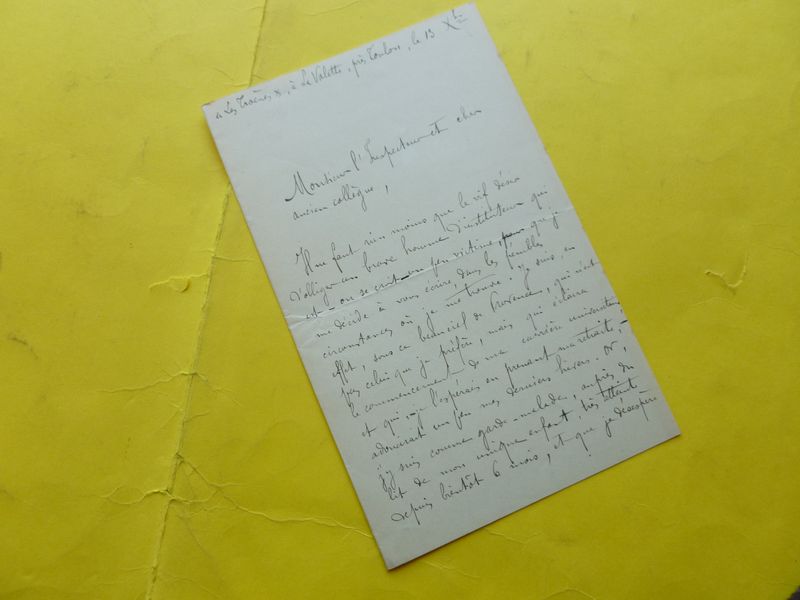 à La Valette, près Toulon, le 13 Xbre
Monsieur l'Inspecteur et cher
ancien collègue,
Il ne faut rien moins que le vif désir
d'obliger un brave homme d'instituteur qui
est - ou se croit - un peu victime, pour que je
me décide à vous écrire, dans les pénibles
circonstances où je me trouve : j'y suis, en
effet, sous ce beau ciel de Provence, qui n'est
pas celui que je préfère, mais qui éclaira
le commencement de ma carrière universitaire,
et qui, - je l'espérais en prenant ma retraite, -
adoucirait un peu mes derniers hivers. Or,
j'y suis comme garde-malade, auprès du
lit de mon unique enfant, très atteint
depuis bientôt 6 mois, et que je désespère